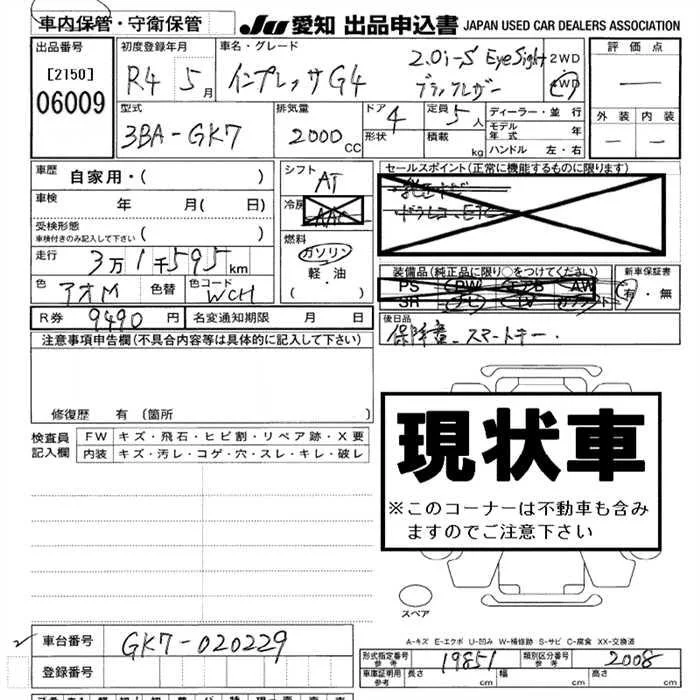 車内保管・守衛保管 JU 愛知 出品申込書 JAPAN USED CAR DEALERS ASSOCIATION
出品番号 初度登録年月 車名・グレード 評価点
[2150] R4 5月 インプレッサG4 2.0i-S EyeSight 2WD
06009 4WD 一
型式 排気量 ドア 4 定員 5人 ディーラー・並行 外装 内装
3BA-GK7 2000CC 形状 積載 kg モデル年式 年 一 一
ハンドル 左・右
車歴 自家用・( ) シフト AT セールスポイント(正常に機能するものに限ります)
車検 年 月( 日) 冷房 AAC 純正ナビ
ドラレコ、ETC
受検形態 燃料
車検付きのみ記入して下さい ( ) ガソリン
走行 3万1千595km 軽・油
( )
装備品(純正品に限り○をつけてください) 新車保証書
色 アオM 色替 色コード WCH PS PW エアB AW 有・無
SR ナビ TV
R券 9490円 名変通知期限 月 日 後日品
注意事項申告欄(不具合内容等は具体的に記入して下さい) 保険書、スマートキー.
修復歴 有(箇所
検査員記入欄 FW キズ・飛石・ヒビ割・リペア跡・X要
内装 キズ・汚レ・コゲ・穴・スレ・キレ・破レ
現状車
※このコーナーは不動車も含み
ますのでご注意下さい
スペア
A-キズ E-エクボ U-凹み W-補修跡 S-サビ C-腐食 XX-交換済
車台番号 GK7-020229
登録番号
形式指定番号 参考 19851 類別区分番号 参考 2008
車庫証明用 参考 長さ cm 幅 cm 高さ cm